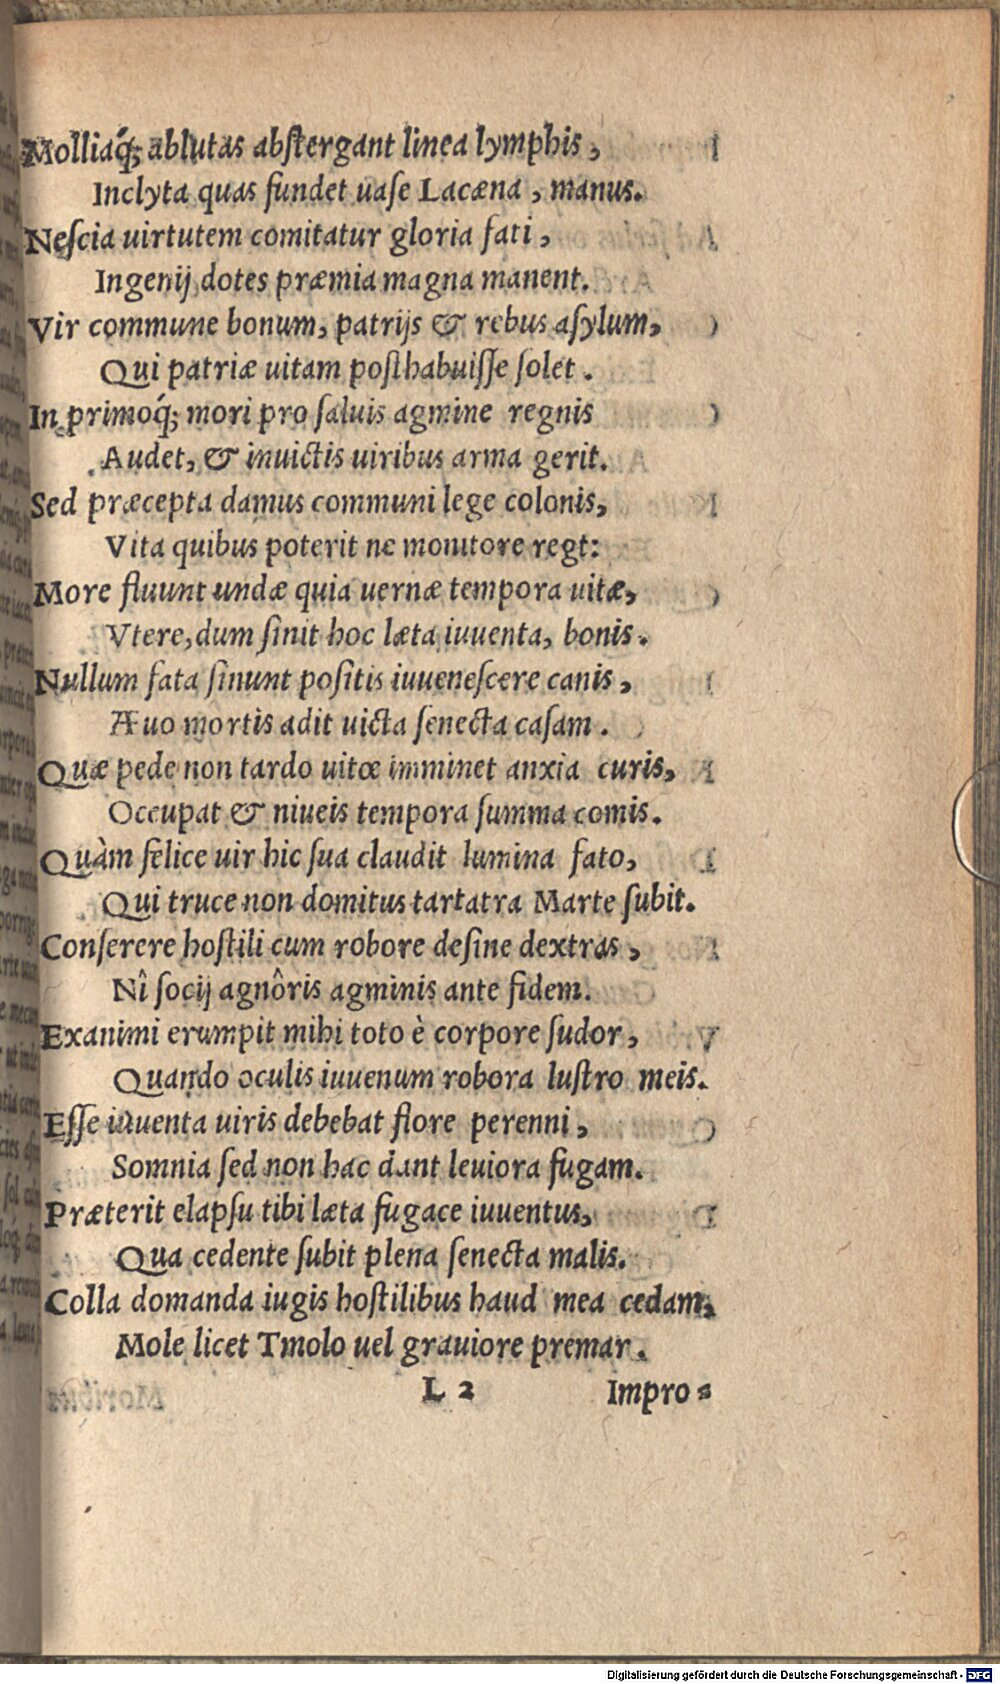 Molliaq́; ablutas abſtergant linea lymphis,
Inclyta quas fundet uaſe Lacæna, manus.
Neſcia uirtutem comitatur gloria fati,
Ingenij dotes præmia magna manent.
Vir commune bonum, patrijs & rebus aſylum,
Qui patriæ uitam poſthabuiſſe ſolet.
In primoq́; mori pro ſaluis agmine regnis
Audet, & inuictis uiribus arma gerit.
Sed præcepta damus communi lege colonis,
Vita quibus poterit ne monitore regi:
More fluunt undæ quia uernæ tempora uitæ,
Vtere, dum ſinit hoc læta iuuenta, bonis.
Nullum fata ſinunt poſitis iuueneſcere canis,
Æuo mortis adit uicta ſenecta caſam.
Quæ pede non tardo uitœ imminet anxia curis,
Occupat & niueis tempora ſumma comis.
Quàm felice uir hic ſua claudit lumina fato,
Qui truce non domitus tartatra Marte ſubit.
Conſerere hoſtili cum robore deſine dextras,
Nî ſocij agnôris agminis ante fidem.
Exanimi erumpit mihi toto è corpore ſudor,
Quando oculis iuuenum robora luſtro meis.
Eſſe iuuenta uiris debebat flore perenni,
Somnia ſed non hac dant leuiora fugam.
Præterit elapſu tibi læta fugace iuuentus,
Qua cedente ſubit plena ſenecta malis.
Colla domanda iugis hoſtilibus haud mea cedam,
Mole licet Tmolo uel grauiore premar.
L 2 Impro-
Digitalisierung gefördert durch die Deutsche Forschungsgemeinschaft - DFG